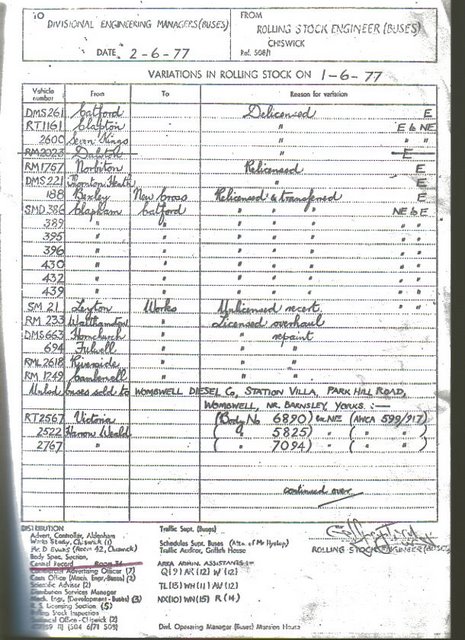 TO
DIVISIONAL ENGINEERING MANAGERS (BUSES)
DATE 2-6-77
FROM
ROLLING STOCK ENGINEER (BUSES)
CHISWICK
Ref. 508/1
VARIATIONS IN ROLLING STOCK ON 1-6-77
Vehicle number From To Reason for variation
DMS 261 Catford Delicensed E
RT 1161 Clapton " E to NE
2600 Seven Kings " " "
RM 2023 Dalston " E
RM 1767 Norbiton Relicensed E
DMS 221 Thornton Heath " E
188 Bexley New Cross Relicensed & transferred E
SMD 386 Clapham Catford " " " NE to E
389 " " " " " " "
395 " " " " " " "
396 " " " " " " "
430 " " " " " " "
437 " " " " " " "
439 " " " " " " "
SM 21 Leyton Works Unlicensed recert.
RM 233 Walthamstow " Licensed overhaul
DMS 663 Hornchurch " " repaint
694 Fulwell " " "
RML 2618 Riverside " " "
RM 1249 Camberwell " " "
Unlcd buses sold to WOMBWELL DIESEL Co, STATION VILLA, PARK HILL ROAD,
WOMBWELL, NR. BARNSLEY, YORKS. :—
RT 2567 Victoria (Body No 6890) to NE (AWCA 599/917)
2522 Harrow Weald ( " 5825) " ( " " )
2767 " ( " 7094) " ( " " )
continued over
DISTRIBUTION
Advert. Controller, Aldenham
Works Study, Chiswick (1)
Mr. D Evans (Room 42, Chiswick)
Body Spec. Section,
Central Record ROOM 36
Commercial Advertising Officer (7)
Cash Office (Mech. Engr. Buses) (2)
Scientific Advisor (2)
Distribution Services Manager
Mech. Engr. (Development - Buses) (3)
R. S. Licensing Section (5)
Rolling Stock Inspection
Technical Office - Chiswick (2)
Traffic Supt. (Buses)
Schedules Supt. Buses (Attn. of Mr Hyslop)
Traffic Auditor, Griffith House
AREA ADMIN. ASSISTANTS :-
Q (9) AR (12) W (12)
TL (13) WN (11) AV (12)
NX (10) WN (15) R (14)
Divl. Operating Manager (Buses) Mansion House
ROLLING STOCK ENGINEER (BUSES)